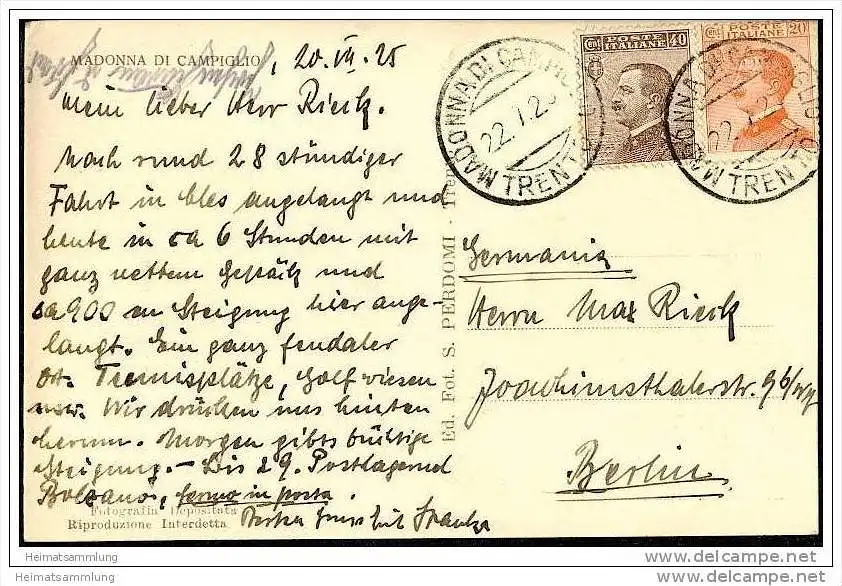 MADONNA DI CAMPIGLIO, 20.VII.25
Mein lieber Herr Rieck.
Nach rund 28 stündiger
Fahrt in Cles angelangt und
heute in ca 6 Stunden mit
ganz nettem Gepäck und
ca 900 m Steigung hier ange-
langt. Ein ganz feudaler
Ort. Tennisplätze, Golfwiesen
usw. Wir drücken uns hinten
herum. Morgen gibts tüchtige
Steigung. – Bis 29. Postlagernd
Bolzano, fermo in posta.
Besten Gruss
Fotografia Depositata
Riproduzione Interdetta
Ed. Fot. S. PERDOMI - Tren
MADONNA DI CAMPIGLIO
22.7.25
TRENTO
Cent POSTE ITALIANE 40
Cent POSTE ITALIANE 20
MADONNA DI CAMPIGLIO
22.7.2
TRENTO
Germania
Herrn Max Rieck
Joachimsthalerstr. 9b
Berlin
Heimatsammlung
Heimatsammlung
http://www.delcampe.net
http://www.delcampe.net